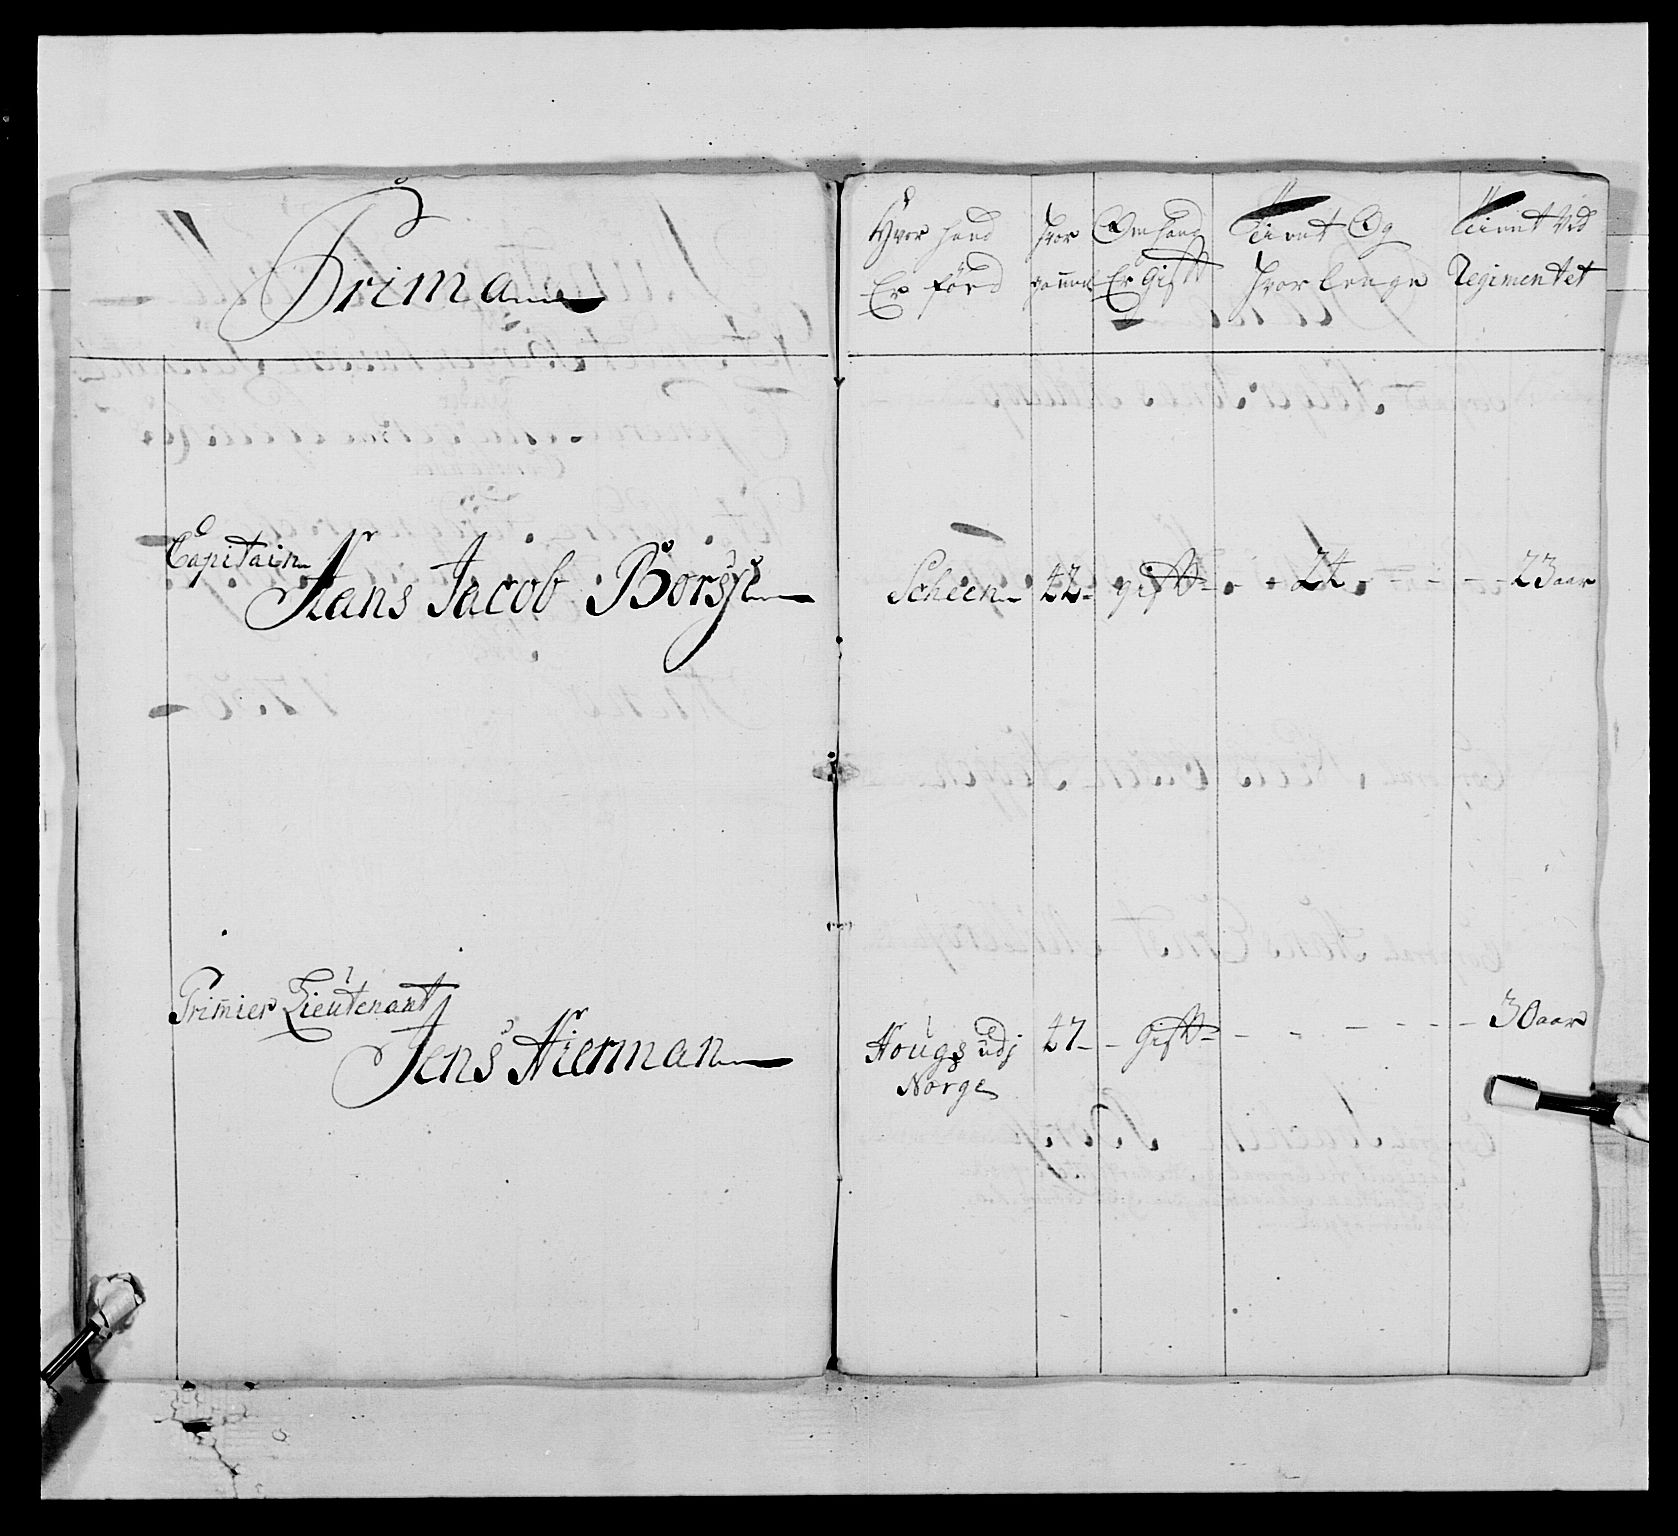 Prima
Hvor hand
Er Förd
hvor
gamel
Om hand
Er Gift
Tient Og
hvor lenge
Tient Ved
Regimentet
Capitain
Hans Jacob Börsø
Scheen 42 gift 24 23 aar
Primier Lieutenant
Jens Hierman
Hougs udj 47 Gift 30 aar
Norge